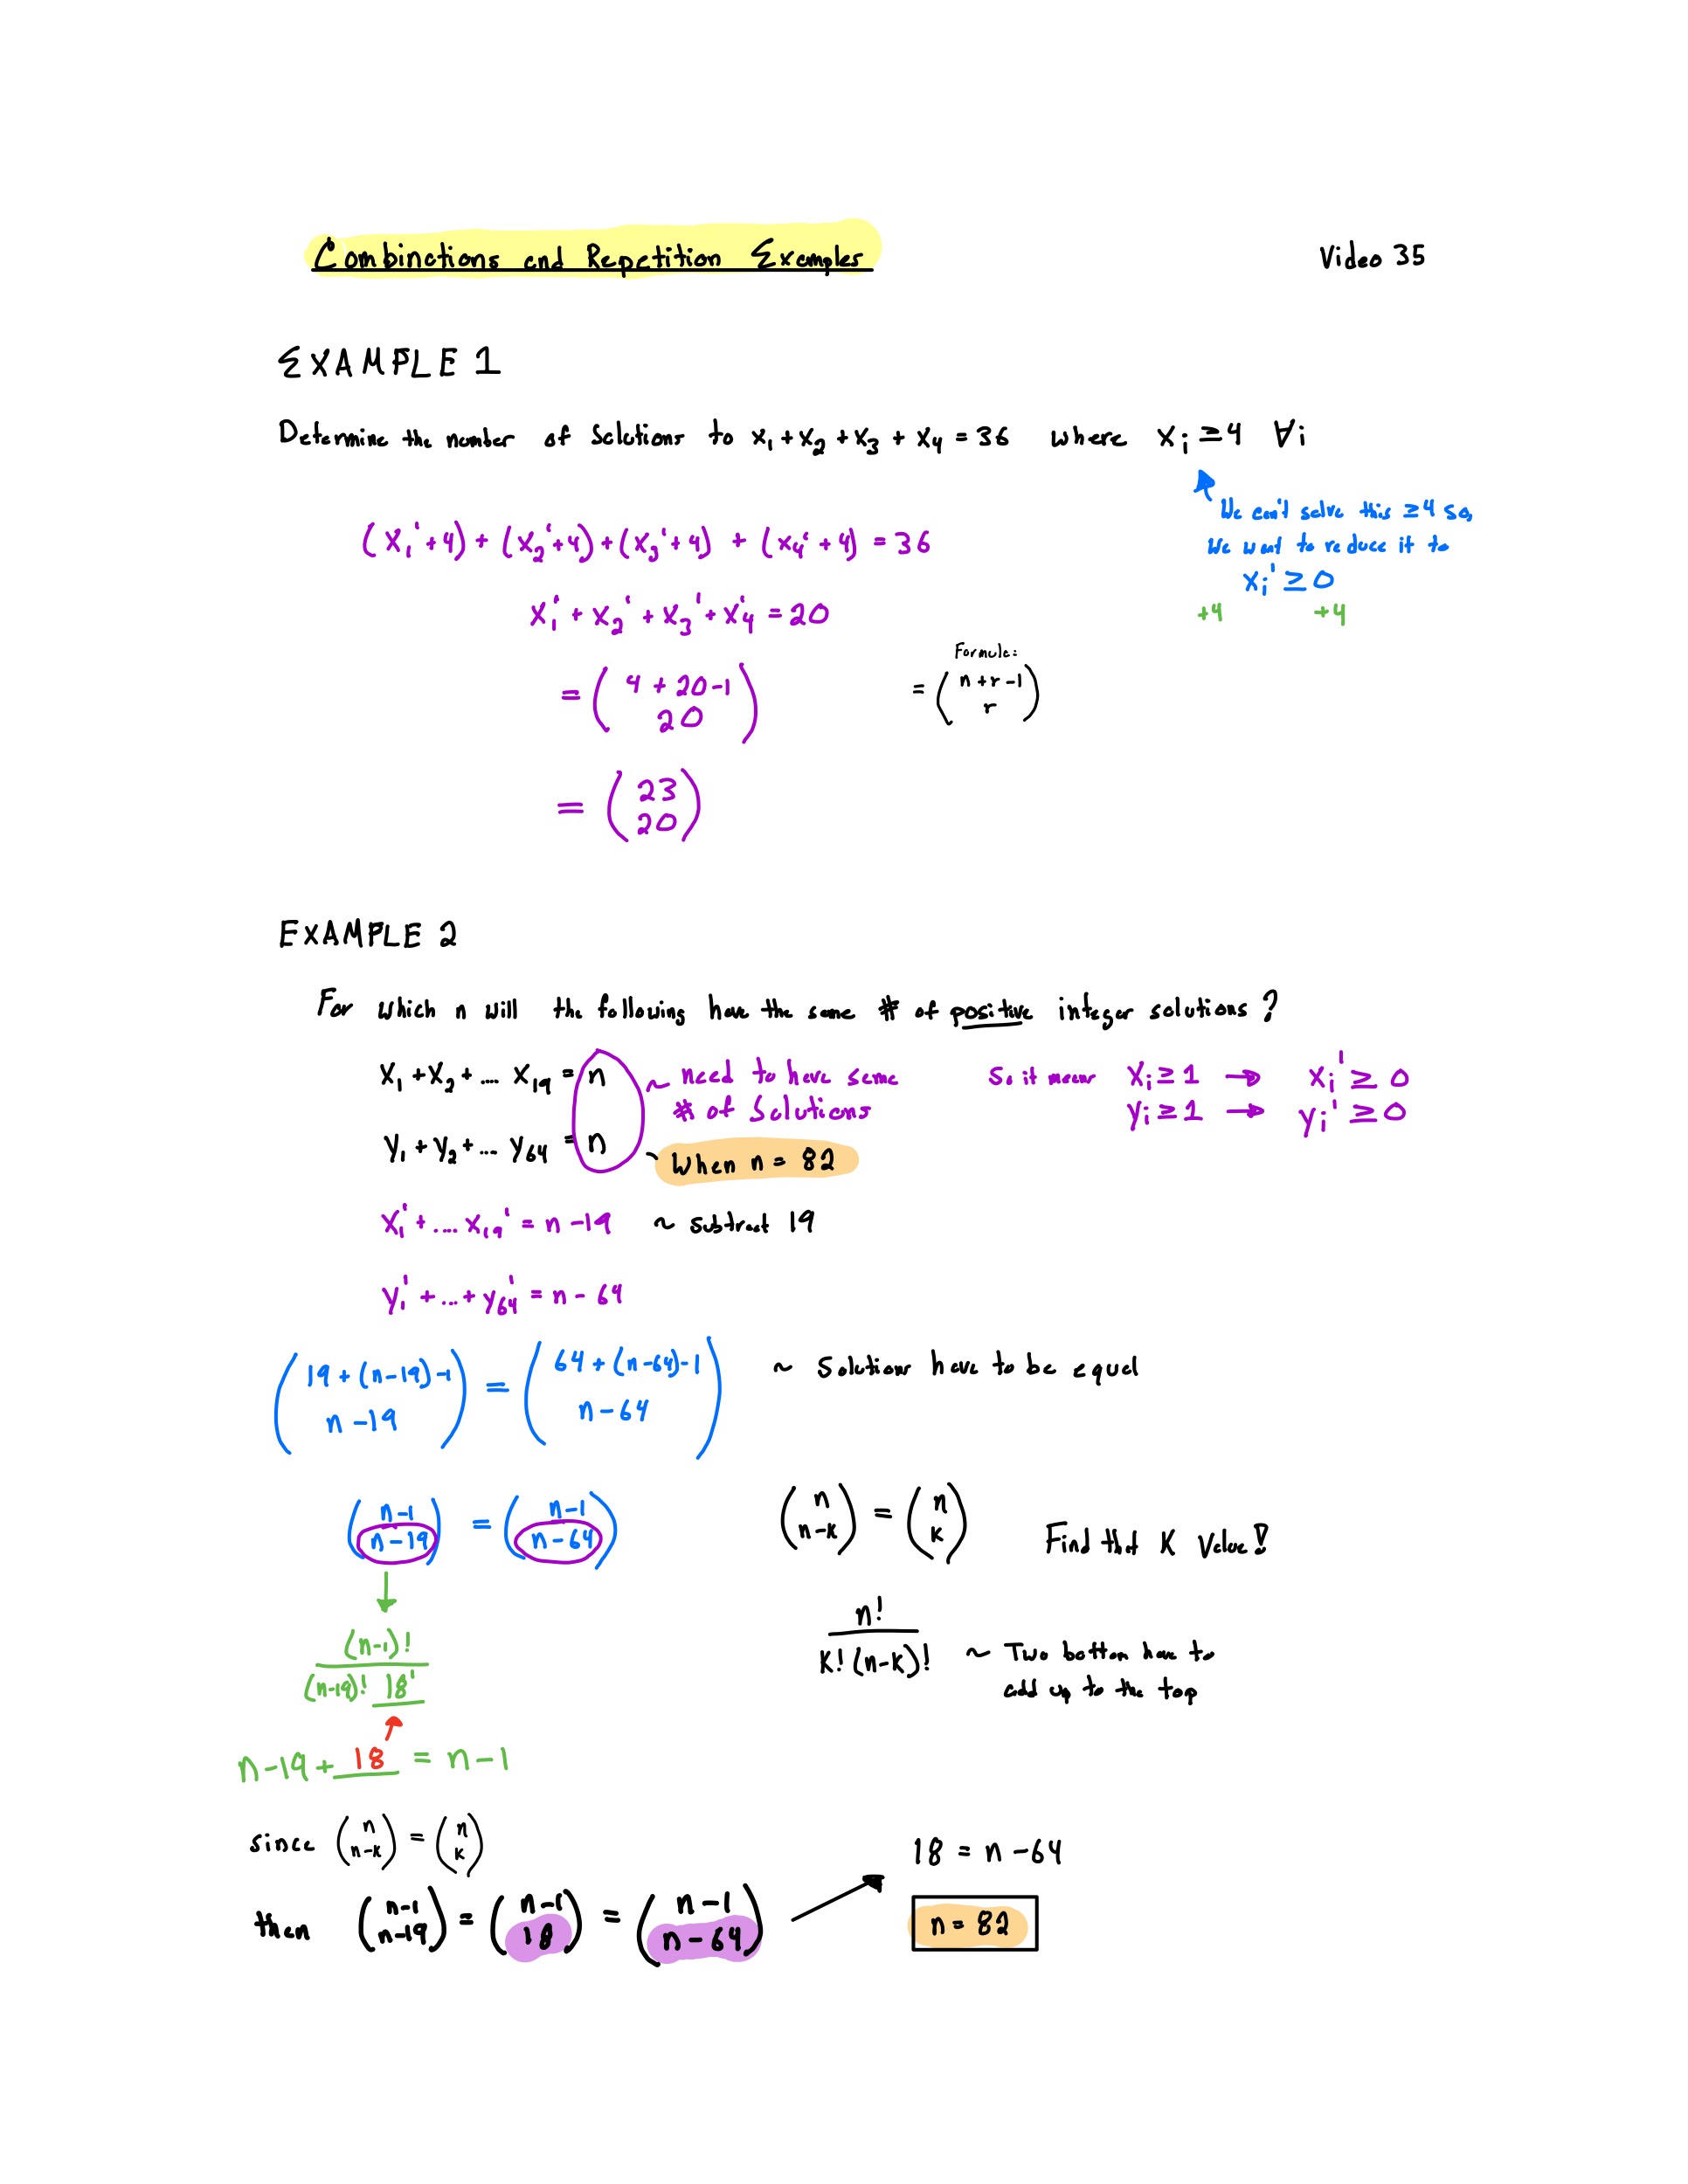 Combinations and Repetition Examples
Video 35
EXAMPLE 1
Determine the number of Solutions to x₁ + x₂ + x₃ + x₄ = 36 where xᵢ ≥ 4 ∀i
We can't solve this ≥ 4 so,
We want to reduce it to
xᵢ' ≥ 0
+4 +4
(x₁' + 4) + (x₂' + 4) + (x₃' + 4) + (x₄' + 4) = 36
x₁' + x₂' + x₃' + x₄' = 20
Formula:
= ( 4 + 20 - 1
20 )
= ( n + r - 1
r )
= ( 23
20 )
EXAMPLE 2
For which n will the following have the same # of positive integer solutions?
x₁ + x₂ + ... x₁₉ = n
~ need to have same
# of Solutions
So it means xᵢ ≥ 1 → xᵢ' ≥ 0
yᵢ ≥ 1 → yᵢ' ≥ 0
y₁ + y₂ + ... y₆₄ = n
When n = 82
x₁' + .... x₁₉' = n - 19 ~ subtract 19
y₁' + ... + y₆₄' = n - 64
( 19 + (n-19) - 1
n - 19 )
=
( 64 + (n-64) - 1
n - 64 )
~ Solutions have to be equal
( n-1
n-19 )
=
( n-1
n-64 )
( n
n-k )
=
( n
k )
Find that K Value!
(n-1)!
(n-19)! 18!
n!
K! (n-k)!
~ Two bottom have to
add up to the top
n-19 + 18 = n-1
since ( n
n-k )
=
( n
k )
then ( n-1
n-19 )
=
( n-1
18 )
=
( n-1
n-64 )
18 = n - 64
n = 82